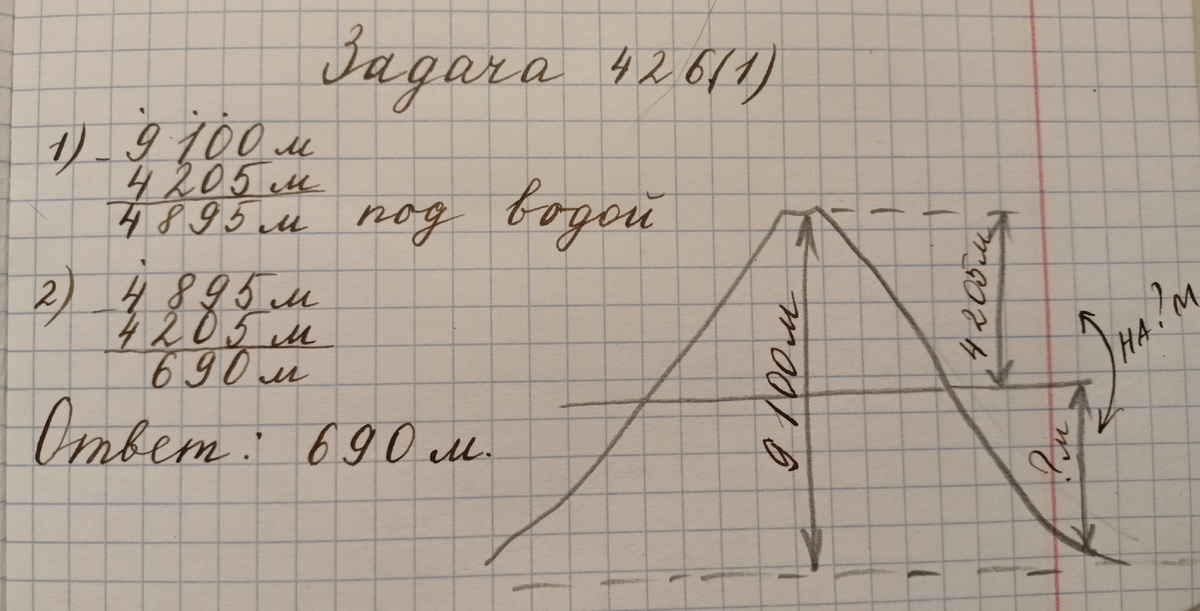 Задача 426(1)
1) - 9 100 м
4 205 м
4 895 м под водой
2) - 4 895 м
4 205 м
690 м
Ответ: 690 м.
9 100 м
4 205 м
на ? м
? м